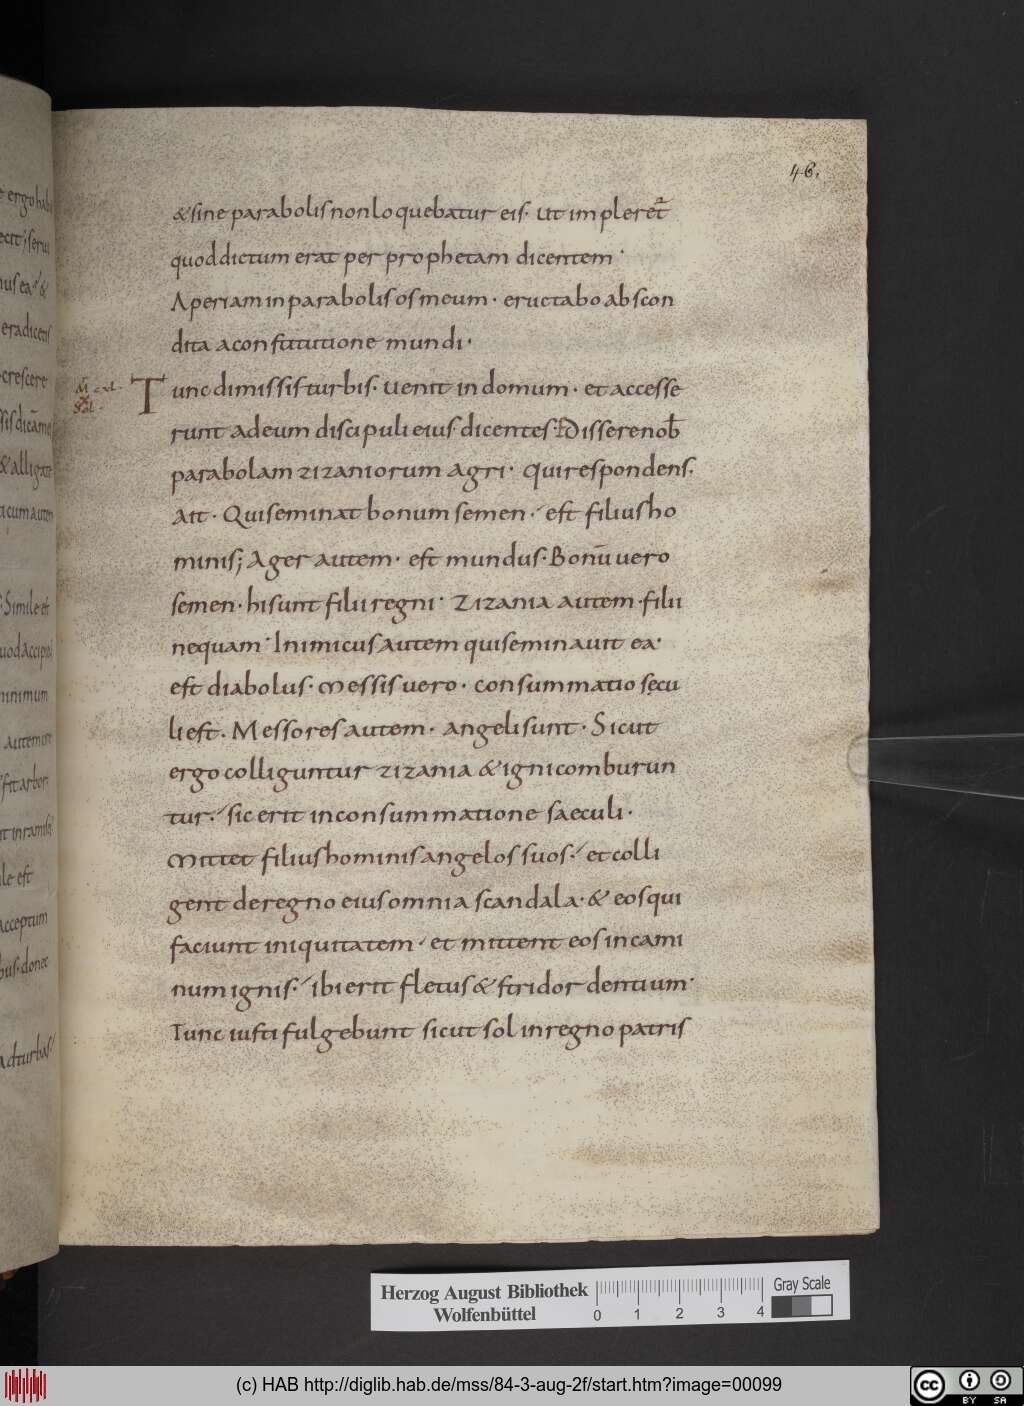 46.
&sine parabolis non loquebatur eis. Ut impleret̄
quod dictum erat per prophetam dicentem.
Aperiam in parabolis os meum. eructabo abscon
dita a constitutione mundi.
M̄ cxl. Tunc dimissis turbis. venit in domum. et accesse
X
runt ad eum discipuli eius. dicentes. Dissere nob̄
parabolam zizaniorum agri. Qui respondens.
Ait. Qui seminat bonum semen. est filius ho
minis; Ager autem. est mundus. Bonū vero
semen. hi sunt filii regni. Zizania autem. filii
nequam. Inimicus autem qui seminavit ea.
est diabolus. Messis vero. consummatio sęcu
li est. Messores autem. angeli sunt. Sicut
ergo colliguntur zizania & igni comburun
tur. sic erit in consummatione saeculi.
Mittet filius hominis angelos suos. et colli
gent de regno eius omnia scandala. & eos qui
faciunt iniquitatem. et mittent eos in cami
num ignis. ibi erit fletus & stridor dentium.
Tunc iusti fulgebunt sicut sol in regno patris
e ergo hab
mus ea. &
eradicetis
crescere
ssis dicā me
& alligate
ticum autem
Simile est
uod accipi
minimum
autem
fit arbor
nt in ramis
ile est
acceptum
bus. donec
ad turbas
Herzog August Bibliothek
Wolfenbüttel
0 1 2 3 4
Gray Scale
(c) HAB http://diglib.hab.de/mss/84-3-aug-2f/start.htm?image=00099
cc BY SA